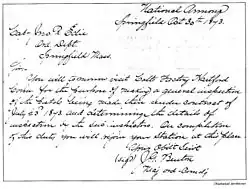 National Armory
Springfield Oct 30th 1893.
Capt Jno. R. Edie
Ord Dept
Springfield Mass
Sir:
You will tomorrow visit Colt's Factory Hartford
Conn for the purpose of making a general inspection
of the Colts being made there under contract of
July 23d 1893 and determining the details of
inspection to the sub-inspectors. On completion
of this duty you will rejoin your Station at this place
Very Obdt Servt
(sgd) J. G. Benton
Maj Ord Comdg